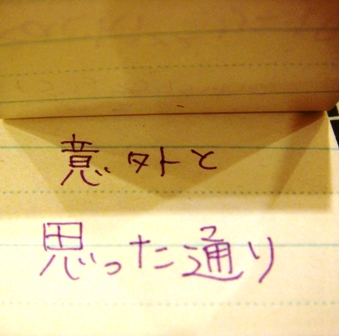 意外と
思った通り